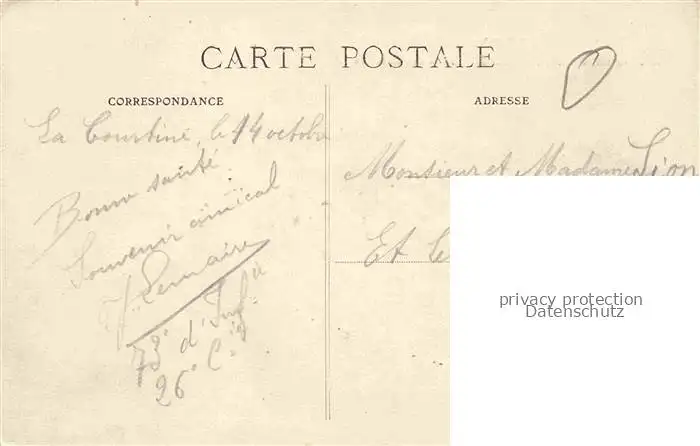 CARTE POSTALE
CORRESPONDANCE
ADRESSE
La Courtine, le 14 octobre
Bonne santé
Souvenir amical
J. Lemaire
73e d'Infie
26e Cie
Monsieur et Madame Lion
Et Le
privacy protection
Datenschutz